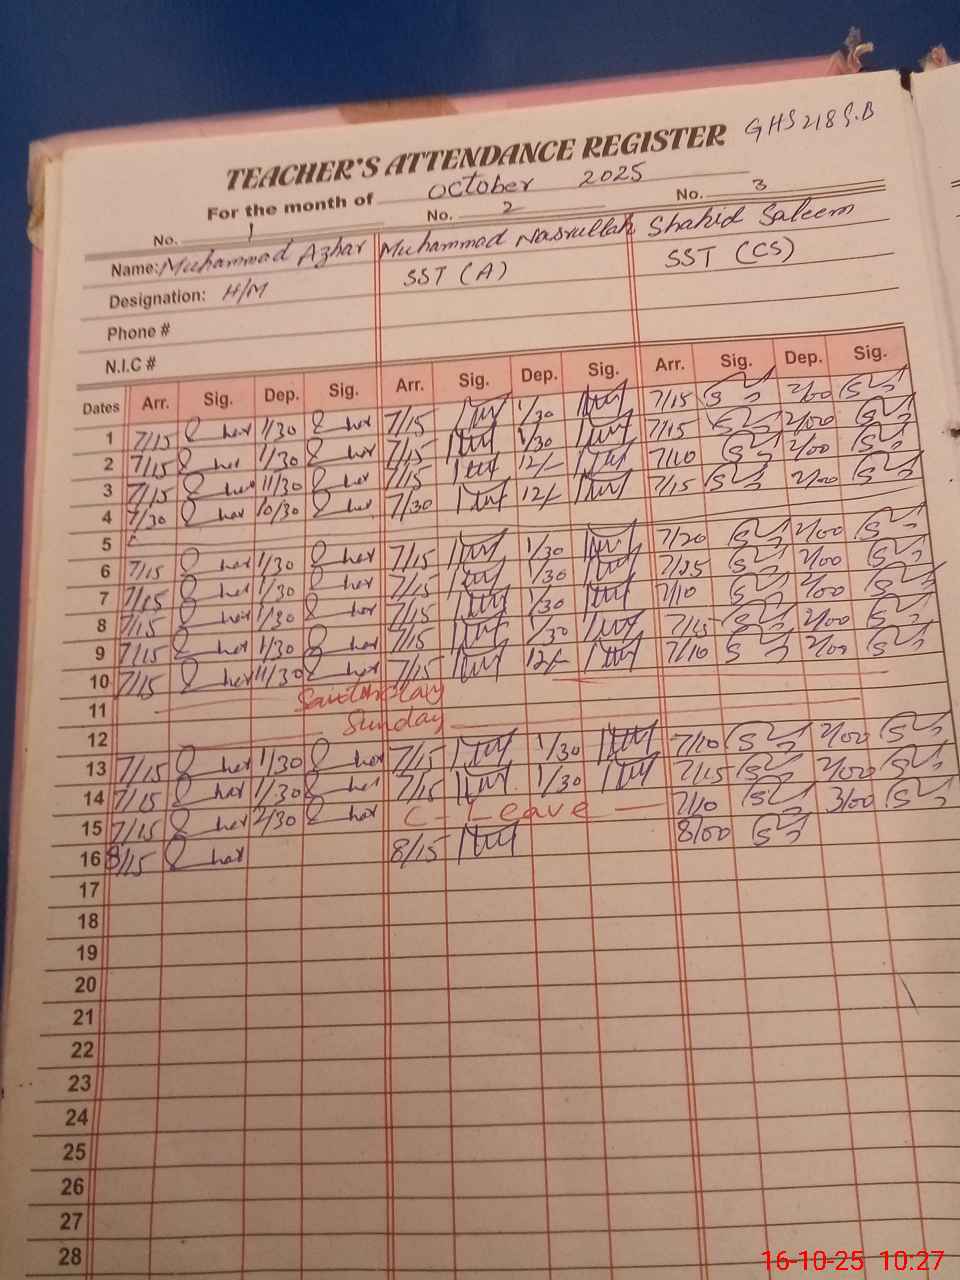 GHS 218 G.B
TEACHER'S ATTENDANCE REGISTER
For the month of October 2025
No. 1 No. 2 No. 3
Name: Muhammad Azhar Muhammad Nasrullah Shahid Saleem
Designation: H/M SST (A) SST (CS)
Phone #
N.I.C #
Dates Arr. Sig. Dep. Sig. Arr. Sig. Dep. Sig. Arr. Sig. Dep. Sig.
1 7/15 1/30 7/15 1/30 7/15 2/00
2 7/15 1/30 7/15 1/30 7/15 2/00
3 7/15 11/30 7/15 12/- 7/10 2/00
4 7/30 10/30 7/30 12/- 7/15 2/00
5
6 7/15 1/30 7/15 1/30 7/20 2/00
7 7/15 1/30 7/15 1/30 7/25 2/00
8 7/15 1/30 7/15 1/30 7/10 2/00
9 7/15 1/30 7/15 1/30 7/15 2/00
10 7/15 11/30 7/15 12/- 7/10 2/00
11 Saturday
12 Sunday
13 7/15 1/30 7/15 1/30 7/10 2/00
14 7/15 1/30 7/15 1/30 7/15 2/00
15 7/15 2/30 C - Leave 7/10 3/00
16 8/15 8/15 8/00
17
18
19
20
21
22
23
24
25
26
27
28
16-10-25 10:27